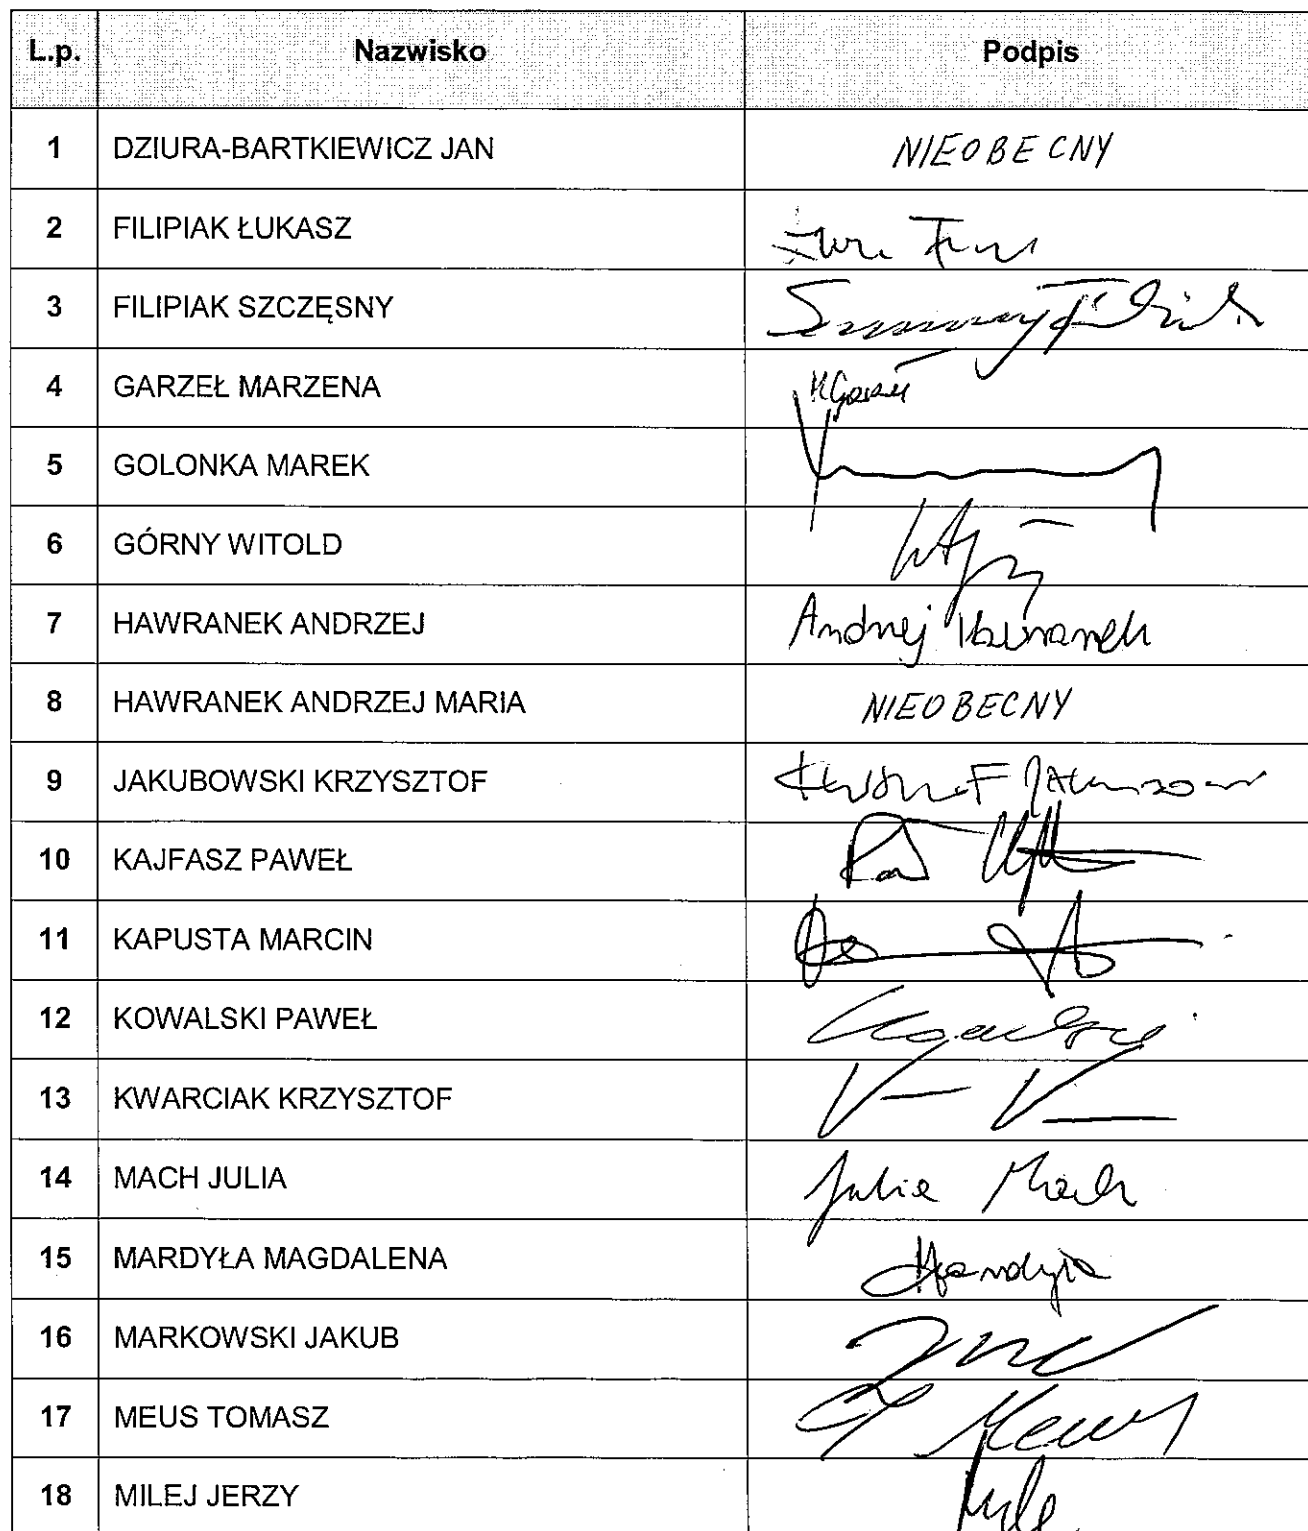 L.p. Nazwisko Podpis
1 DZIURA-BARTKIEWICZ JAN NIEOBECNY
2 FILIPIAK ŁUKASZ
3 FILIPIAK SZCZĘSNY
4 GARZEŁ MARZENA
5 GOLONKA MAREK
6 GÓRNY WITOLD
7 HAWRANEK ANDRZEJ Andrzej Hawranek
8 HAWRANEK ANDRZEJ MARIA NIEOBECNY
9 JAKUBOWSKI KRZYSZTOF
10 KAJFASZ PAWEŁ
11 KAPUSTA MARCIN
12 KOWALSKI PAWEŁ
13 KWARCIAK KRZYSZTOF
14 MACH JULIA Julia Mach
15 MARDYŁA MAGDALENA
16 MARKOWSKI JAKUB
17 MEUS TOMASZ
18 MILEJ JERZY